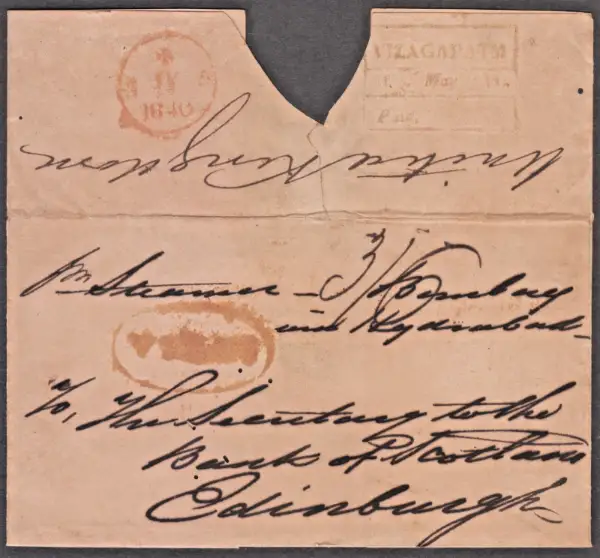 JY
1840
VIZAGAPATM
May
Paid.
United Kingdom
pr Steamer - 3/6 Bombay
via Hydrabad
To, The Secretary to the
Bank of Scotland
Edinburgh